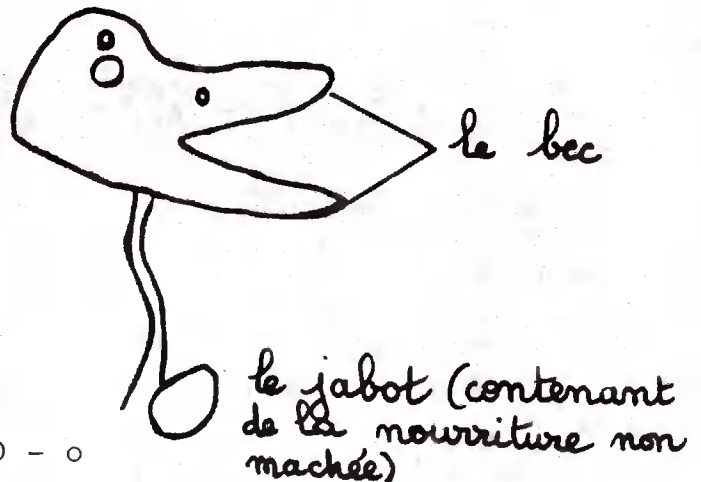 le bec
le jabot (contenant
de la nourriture non
machée)
) - o